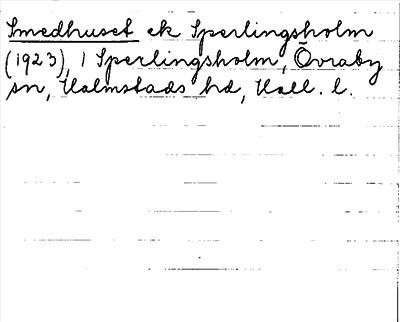 Smedhuset ek Sperlingsholm
(1923), 1 Sperlingsholm, Övraby
sn, Halmstads hd, Hall. l.